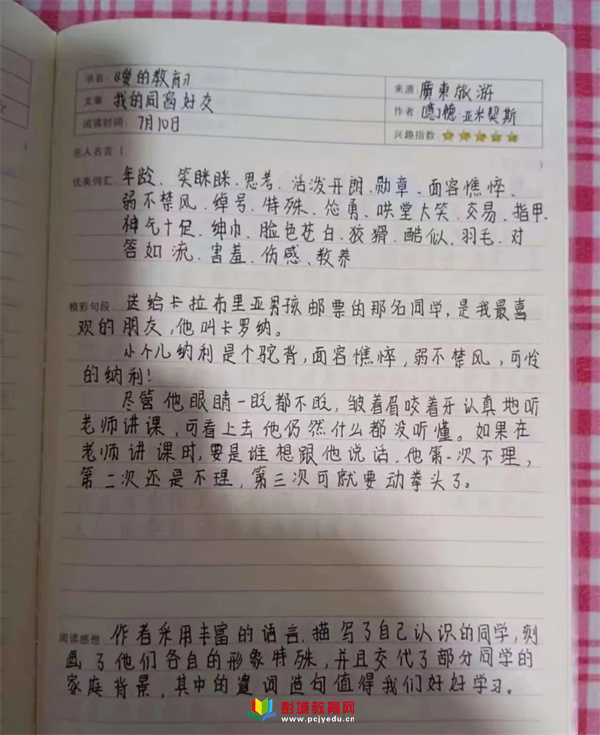 书名：《爱的教育》
来源 廣東旅游
文章 我的同窗好友
作者 [意]德 亚米契斯
阅读时间： 7月10日
兴趣指数
名人名言
优美词汇 年龄、笑眯眯、思考、活泼开朗、勋章、面容憔悴、
弱不禁风、绰号、特殊、怂勇、哄堂大笑、交易、指甲、
神气十足、绅巾、脸色苍白、狡猾、酷似、羽毛、对
答如流、害羞、伤感、教养
精彩句段 送给卡拉布里亚男孩邮票的那名同学，是我最喜
欢的朋友，他叫卡罗纳。
小个儿纳利是个驼背，面容憔悴，弱不禁风，可怜
的纳利！
尽管他眼睛一眨都不眨，皱着眉咬着牙认真地听
老师讲课，可看上去他仍然什么都没听懂。如果在
老师讲课时，要是谁想跟他说话，他第一次不理，
第二次还是不理，第三次可就要动拳头了。
阅读感想 作者采用丰富的语言，描写了自己认识的同学，刻
画了他们各自的形象特殊，并且交代了部分同学的
家庭背景，其中的遣词造句值得我们好好学习。
彭城教育网
www.pcjyedu.cn